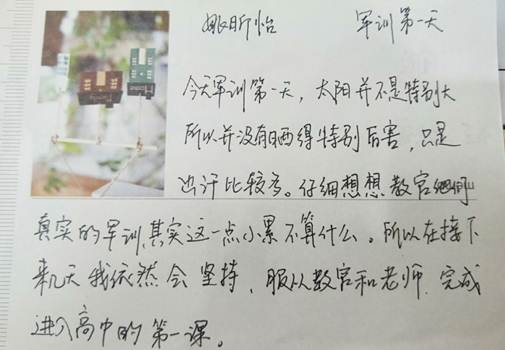 姚昕怡 军训第一天
今天军训第一天，太阳并不是特别大
所以并没有晒得特别厉害，只是
出汗比较多。仔细想想教官们
真实的军训，其实这一点小累不算什么。所以在接下
来几天我依然会坚持，服从教官和老师，完成
进入高中的第一课。